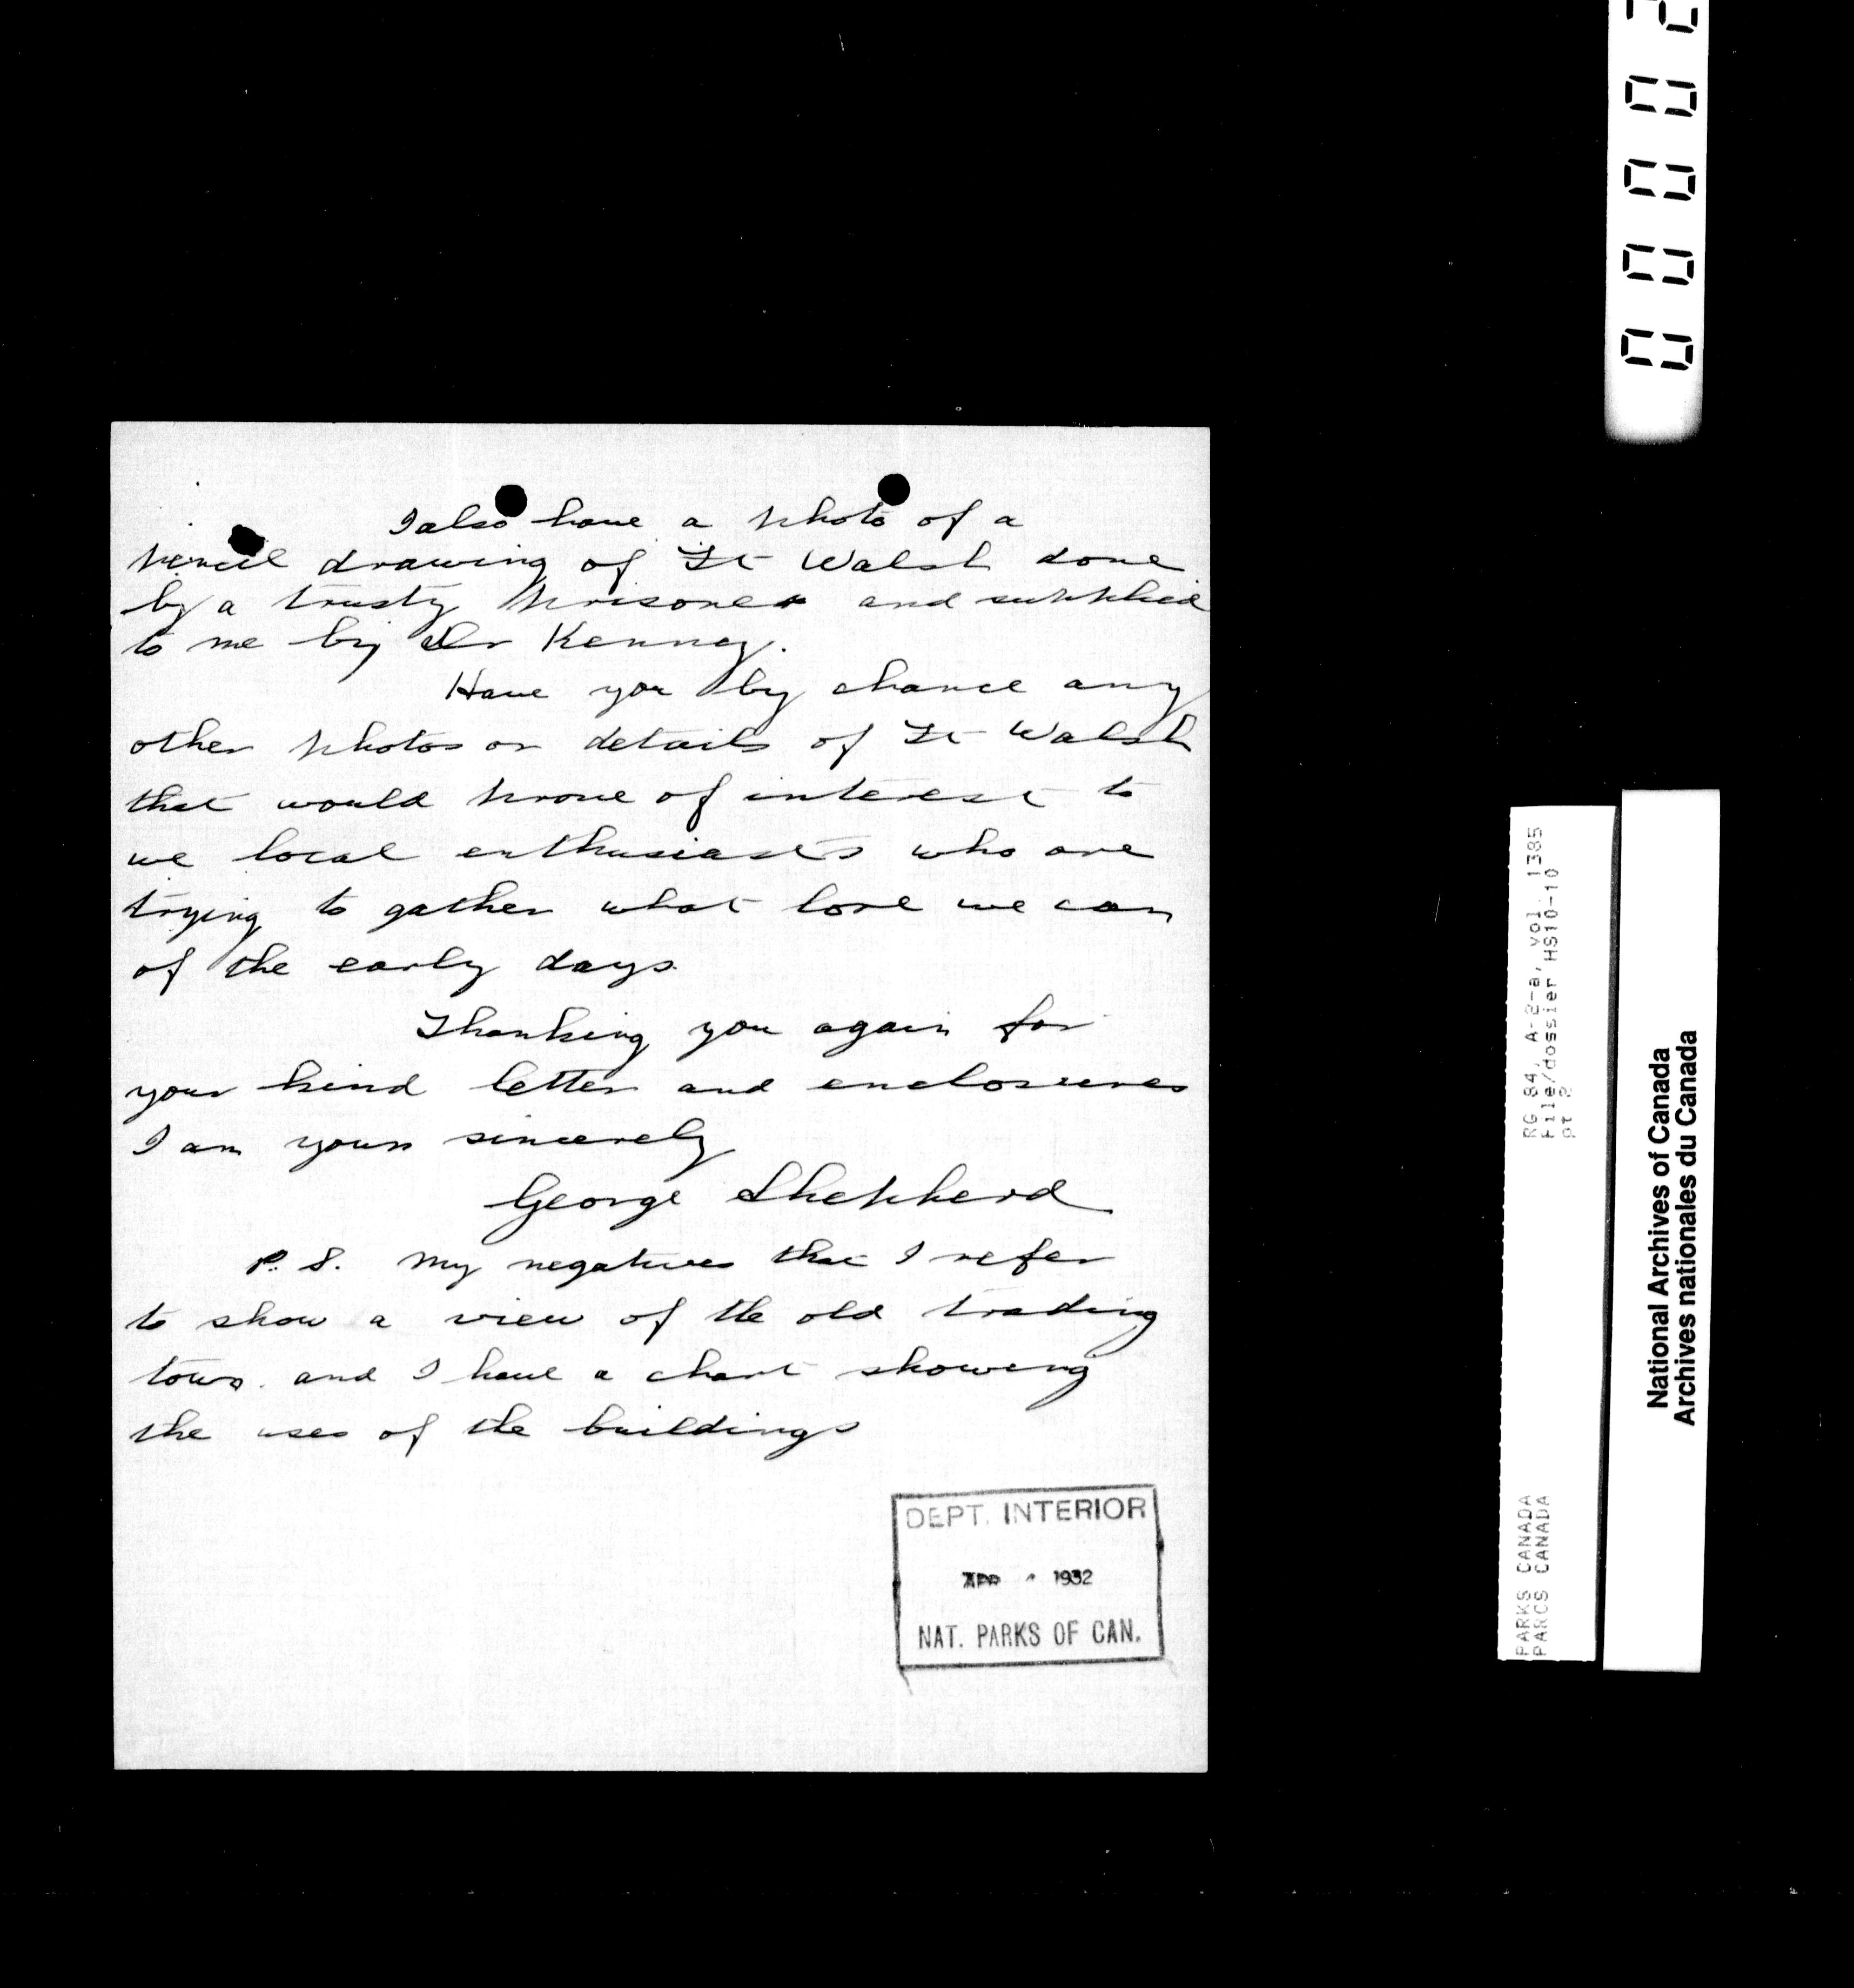 I also have a photo of a
pencil drawing of Ft Walsh done
by a trusty prisoner and supplied
to me by Dr Kenney.
Have you by chance any
other photos or details of Ft Walsh
that would prove of interest to
we local enthusiasts who are
trying to gather what lore we can
of the early days.
Thanking you again for
your kind letter and enclosures
I am yours sincerely
George Shepherd
P.S. My negatives that I refer
to show a view of the old trading
town. and I have a chart showing
the uses of the buildings
DEPT. INTERIOR
APR 1932
NAT. PARKS OF CAN.
RG 84, A-2-a, vol. 1385
File/dossier HS10-10
pt 2
PARKS CANADA
PARCS CANADA
National Archives of Canada
Archives nationales du Canada
0 0 0 0 2